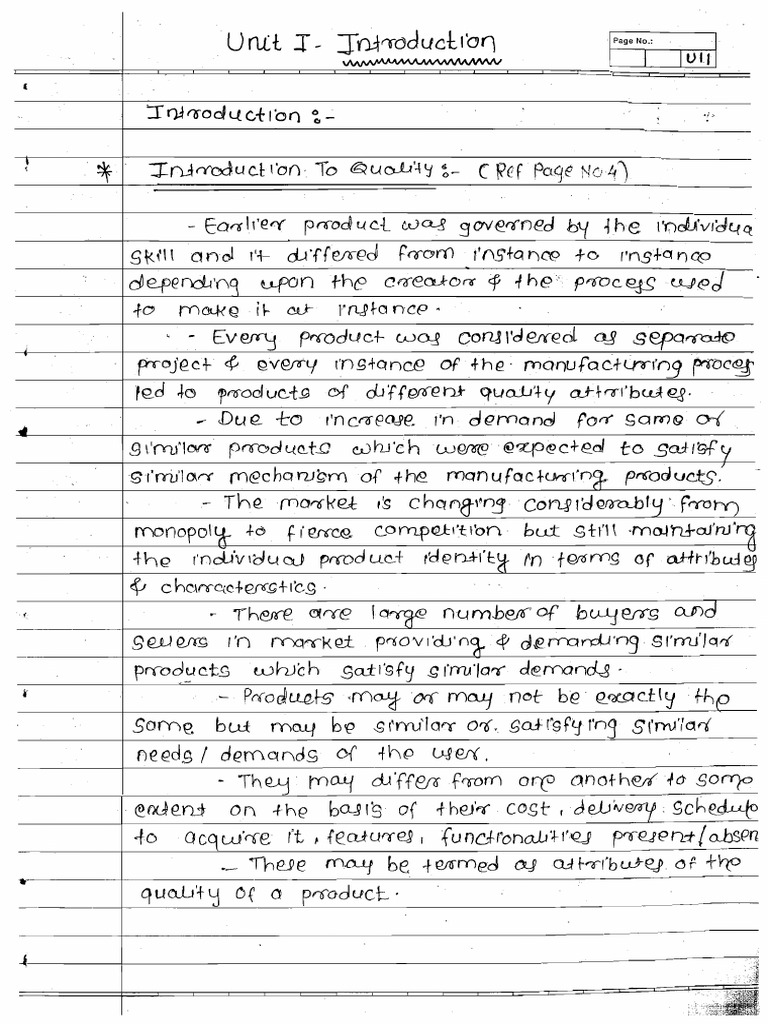 Unit I - Introduction
Page No.:
U11
Introduction :-
* Introduction To Quality :- (Ref Page No 4)
- Earlier product was governed by the individua
skill and it differed from instance to instance
depending upon the creator & the process used
to make it at instance.
- Every product was considered as separate
project & every instance of the manufacturing proces
led to products of different quality attributes.
- Due to increase in demand for same or
similar products which were expected to satisfy
similar mechanism of the manufacturing products.
- The market is changing considerably from
monopoly to fierce competition but still maintaining
the individual product identity in terms of attributes
& characterstics.
- There are large number of buyers and
sellers in market providing & demanding similar
products which satisfy similar demands.
- Products may or may not be exactly the
same but may be similar or satisfying similar
needs / demands of the user.
- They may differ from one another to some
extent on the basis of their cost, delivery schedule
to acquire it, features, functionalities present/absen
- These may be termed as attributes of the
quality of a product.